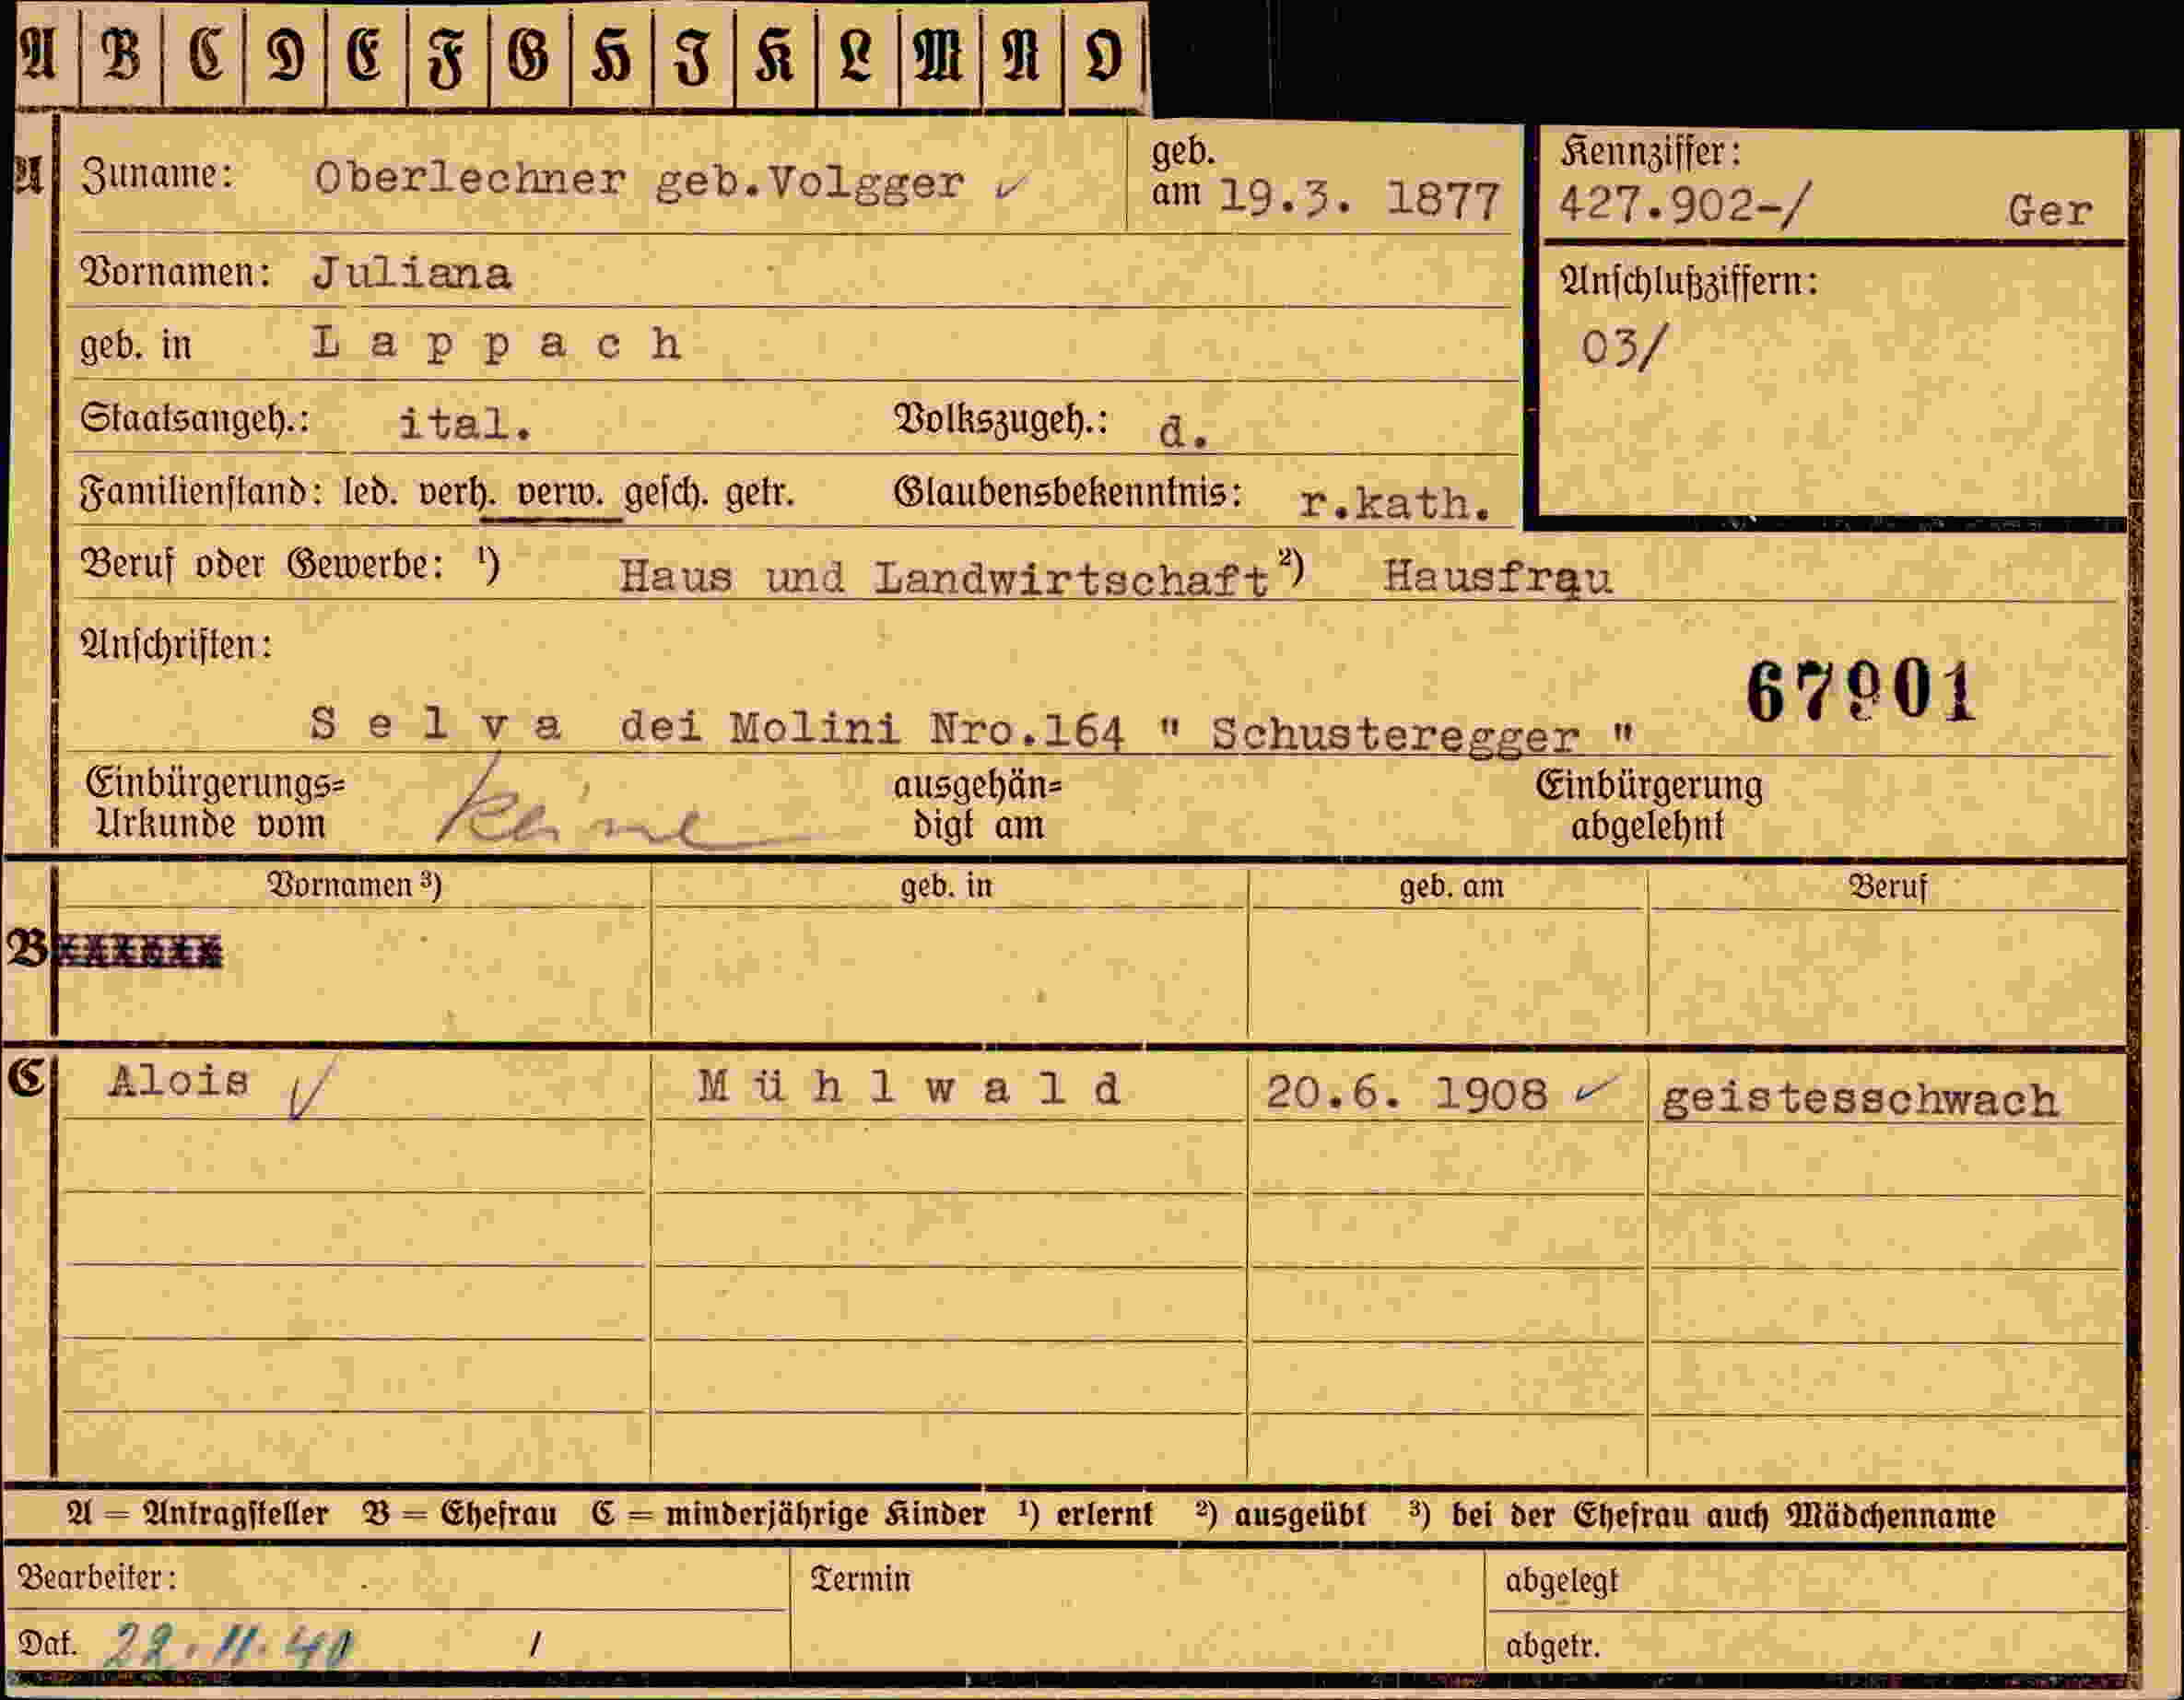 A B C D E F G H I K L M N O
A Zuname: Oberlechner geb.Volgger ✓ geb. am 19.3. 1877 Kennziffer: 427.902-/ Ger
Vornamen: Juliana Anschlußziffern:
geb. in Lappach 03/
Staatsangeh.: ital. Volkszugeh.: d.
Familienstand: led. verh. verw. gesch. getr. Glaubensbekenntnis: r.kath.
Beruf oder Gewerbe: ¹) Haus und Landwirtschaft ²) Hausfrau
Anschriften:
67901
Selva dei Molini Nro.164 " Schusteregger "
Einbürgerungs= ausgehän= Einbürgerung
Urkunde vom keine digt am abgelehnt
Vornamen ³) geb. in geb. am Beruf
B
C Alois ✓ Mühlwald 20.6. 1908 ✓ geistesschwach
A = Antragsteller B = Ehefrau C = minderjährige Kinder ¹) erlernt ²) ausgeübt ³) bei der Ehefrau auch Mädchenname
Bearbeiter: Termin abgelegt
Dat. 22.11.40 / abgetr.